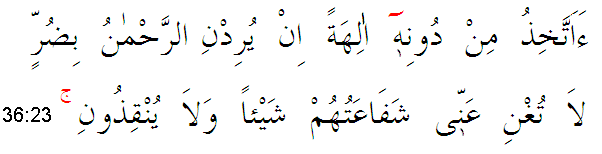 ءَاَتَّخِذُ مِنْ دُونِهٖٓ اٰلِهَةً اِنْ يُرِدْنِ الرَّحْمٰنُ بِضُرٍّ
لاَ تُغْنِ عَنّٖى شَفَاعَتُهُمْ شَيْئاً وَلاَ يُنْقِذُونِ ۚ 36:23